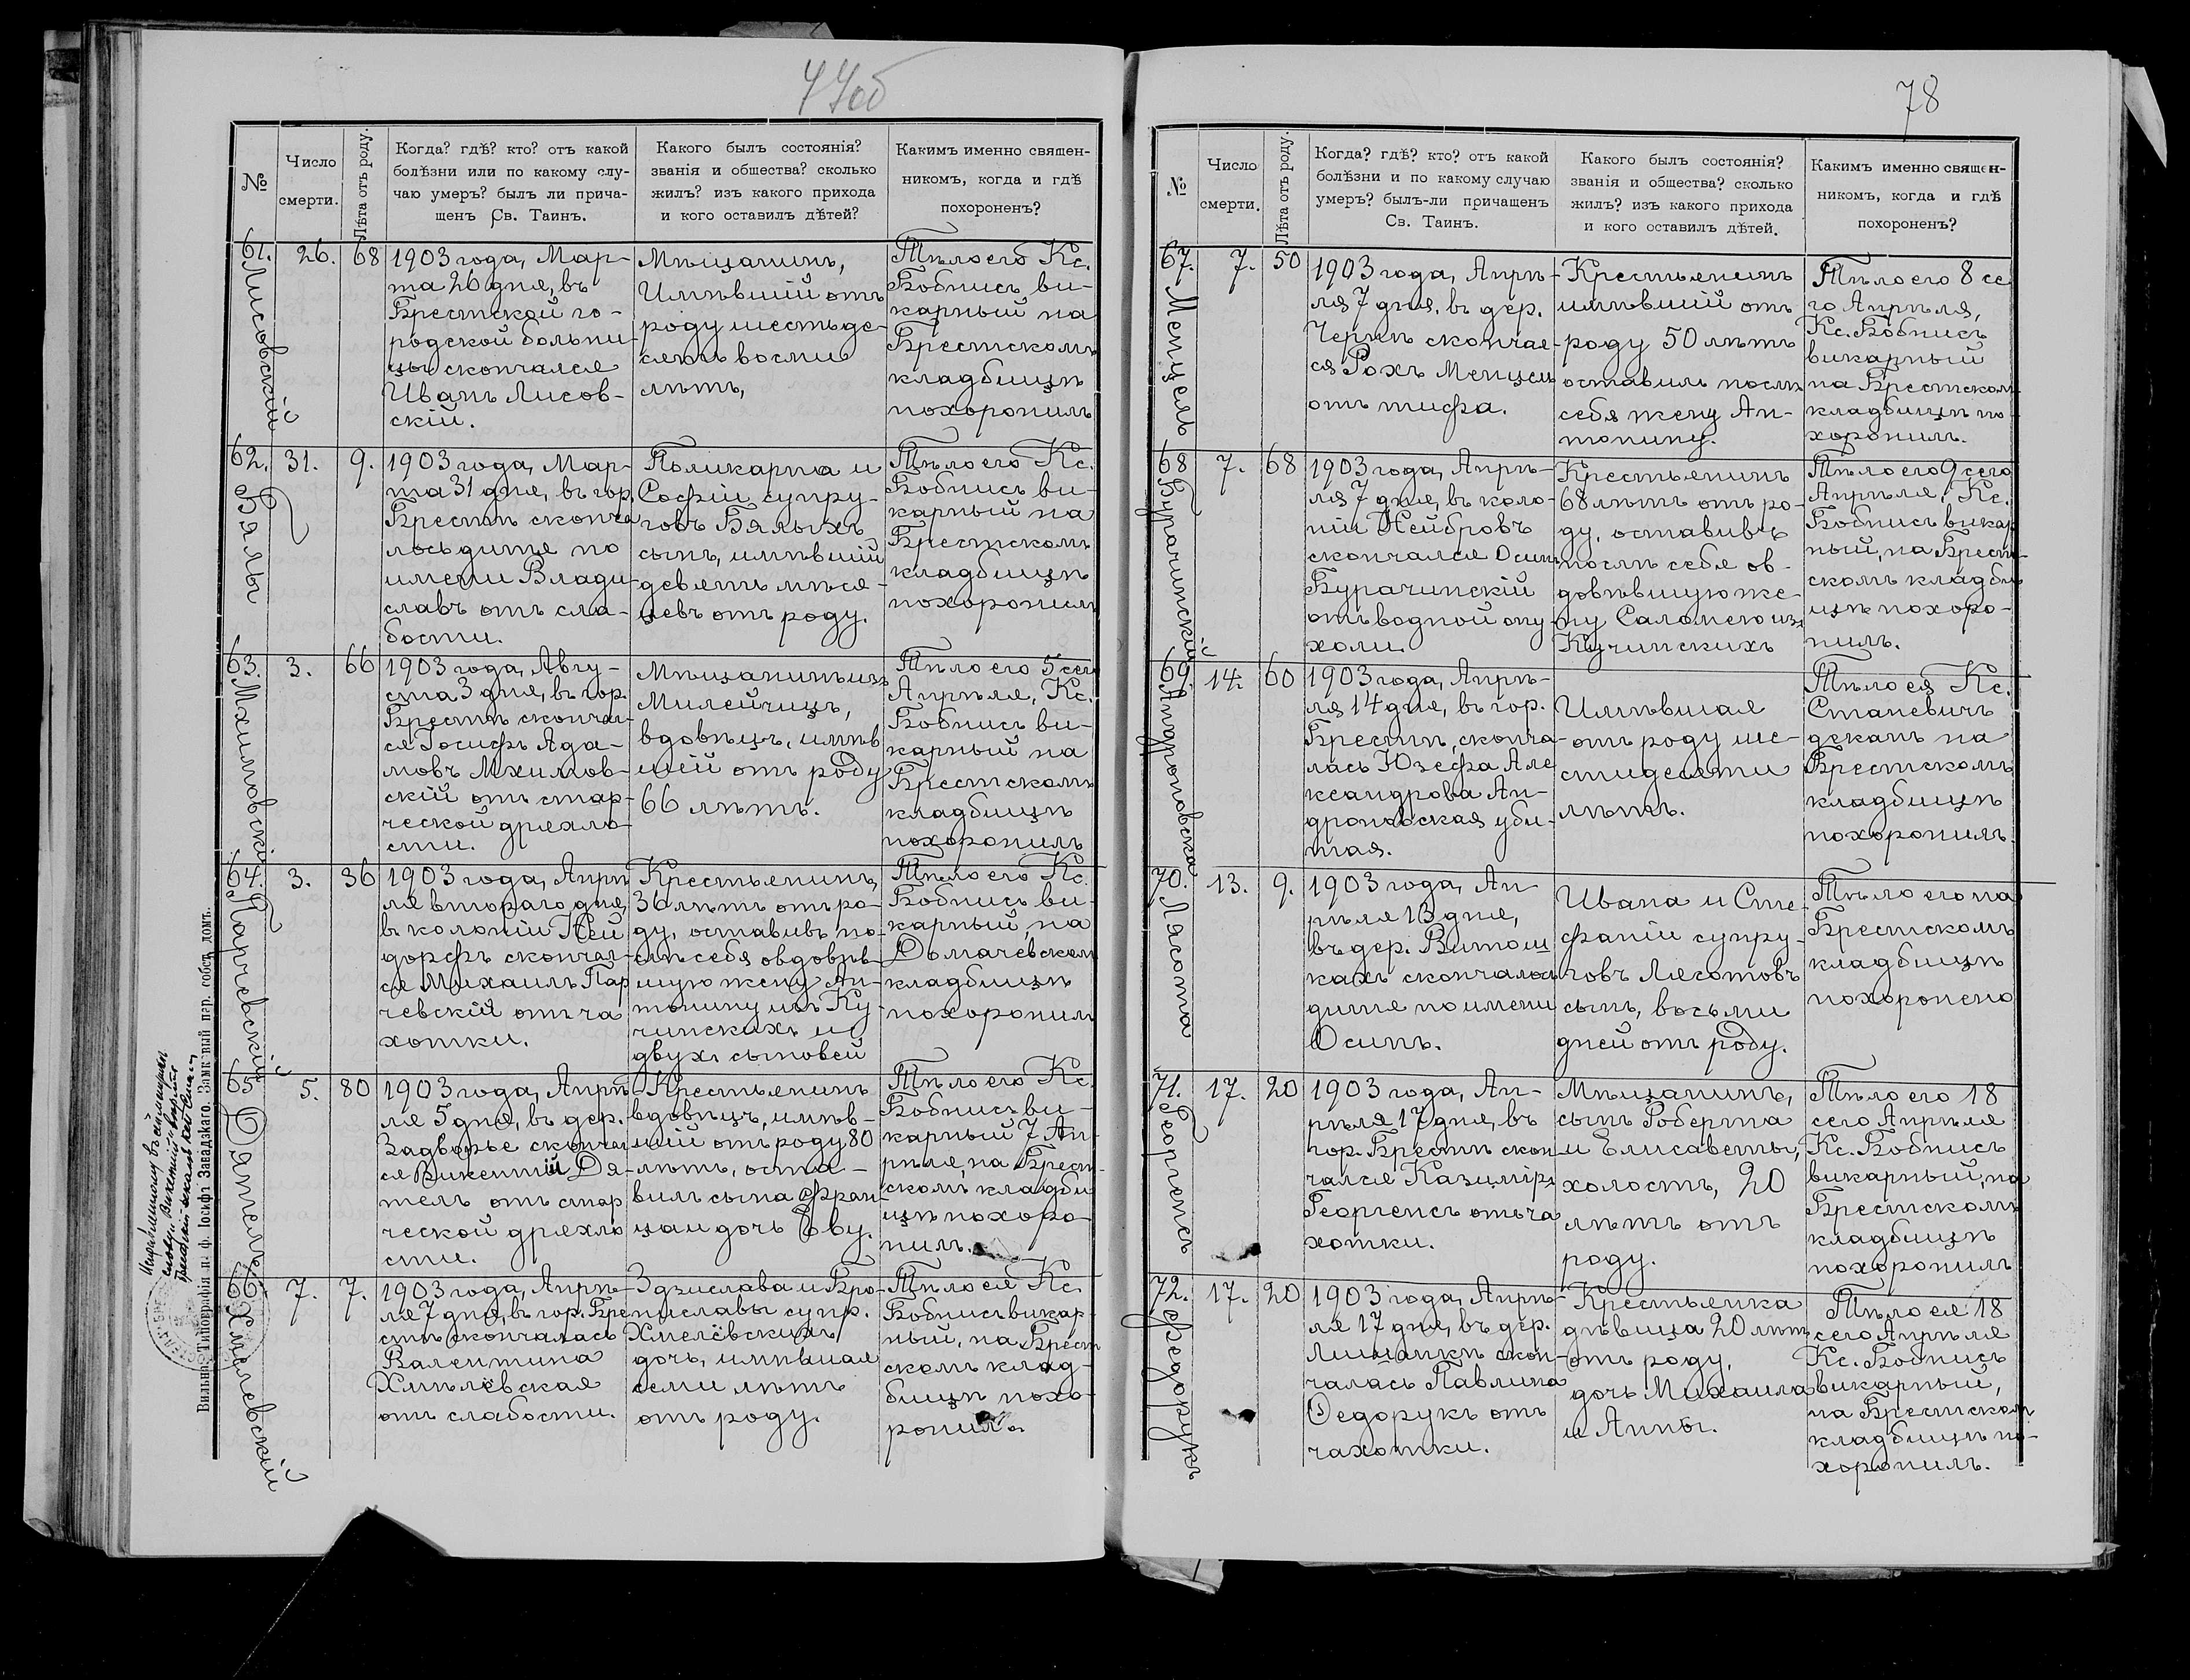 77об
№
Число
смерти.
Лѣта отъ роду.
Когда? гдѣ? кто? отъ какой
болѣзни или по какому слу-
чаю умеръ? былъ ли прича-
щенъ Св. Таинъ.
Какого былъ состоянія?
званія и общества? сколько
жилъ? изъ какого прихода
и кого оставилъ дѣтей?
Какимъ именно священ-
никомъ, когда и гдѣ
похороненъ?
61.
Лисовскій
26.
68
1903 года, Мар-
та 26 дня, въ
Брестской го-
родской больни-
цы скончался
Иванъ Лисов-
скій.
Мѣщанинъ,
Имѣвшій отъ
роду шестьде-
сятъ восми
лѣтъ,
Тѣло его Кс.
Бобнись ви-
карный на
Брестскомъ
кладбищѣ
похоронилъ
62.
Бялы
31.
9.
1903 года, Мар-
та 31 дня, въ гор.
Брестѣ сконча
лось дитя по
имени Влади-
славъ отъ сла-
бости.
Поликарпа и
Софіи супру-
говъ Бялыхъ
сынъ, имѣвшій
девять мѣся-
цевъ отъ роду.
Тѣло его Кс.
Бобнись ви-
карный на
Брестскомъ
кладбищѣ
похоронилъ
63.
Мхимовскій
3.
66
1903 года, Авгу-
ста 3 дня, въ гор.
Брестѣ скончал-
ся Іосифъ Ада-
мовъ Мхимов-
скій отъ стар-
ческой дряхло-
сти.
Мѣщанинъ изъ
Милейчицъ,
вдовецъ, имѣв
шій отъ роду
66 лѣтъ.
Тѣло его 5 сего
Апрѣля, Кс.
Бобнись ви-
карный на
Брестскомъ
кладбищѣ
похоронилъ
64.
Парчевскій
3.
36
1903 года, Апрѣ
ля втораго дня,
въ колоніи Ней
дорфъ скончал-
ся Михаилъ Пар
чевскій отъ ча
хотки.
Крестьянинъ,
36 лѣтъ отъ ро-
ду, оставивъ по-
слѣ себя овдовѣв-
шую жену Ан-
тонину изъ Ку-
чинскихъ и
двухъ сыновей
Тѣло его Кс.
Бобнись ви-
карный, на
Домачевском
кладбищѣ
похоронилъ
65
Дятелъ
5.
80
1903 года, Апрѣ
ля 5 дня, въ дер.
Задворье скончал
ся Викентій Дя-
телъ отъ стар
ческой дряхло
сти.
Крестьянинъ
вдовецъ, имѣв-
шій отъ роду 80
лѣтъ, оста-
вилъ сына Фран-
ца и дочь Еву.
Тѣло его Кс.
Бобнись ви-
карный 7 Ап-
рѣля, на Брест-
скомъ кладби
щѣ похоро-
нилъ.
66
Хмелевскій
7.
7.
1903 года, Апрѣ-
ля 7 дня, въ гор. Бре
стѣ скончалась
Валентина
Хмѣлёвская
отъ слабости.
Здзислава и Бро-
ниславы супр.
Хмелёвскихъ
дочь, имѣвшая
семи лѣтъ
отъ роду.
Тѣло ея Кс.
Бобнись викар-
ный, на Брест
скомъ клад-
бищѣ похо-
ронилъ.
Вильна. Типографія п. ф. Іосифъ Завадзкаго. Замковый пер. собст. домъ.
78
№
Число
смерти.
Лѣта отъ роду.
Когда? гдѣ? кто? отъ какой
болѣзни и по какому случаю
умеръ? былъ-ли причащенъ
Св. Таинъ.
Какого былъ состоянія?
званія и общества? сколько
жилъ? изъ какого прихода
и кого оставилъ дѣтей.
Какимъ именно священ-
никомъ, когда и гдѣ
похороненъ?
67.
Менцель
7.
50
1903 года, Апрѣ-
ля 7 дня, въ дер.
Чернѣ скончал-
ся Рохъ Менцель
отъ тифа.
Крестьянинъ
имѣвшій отъ
роду 50 лѣтъ
оставилъ послѣ
себя жену Ан-
тонину.
Тѣло его 8 се
го Апрѣля,
Кс. Бобнись
викарный
на Брестском
кладбищѣ по-
хоронилъ.
68
Бурачинскій
7.
68
1903 года, Апрѣ-
ля 7 дня, въ коло-
ніи Нейбровъ
скончался Осипъ
Бурачинскій
отъ водной опу
холи.
Крестьянинъ
68 лѣтъ отъ ро-
ду, оставивъ
послѣ себя ов-
довѣвшую же-
ну Саломею изъ
Кучинскихъ
Тѣло его 9 сего
Апрѣля, Кс.
Бобнись викар
ный, на Брест-
скомъ кладби
щѣ похоро-
нилъ.
69.
Андроновская
14.
60
1903 года, Апрѣ-
ля 14 дня, въ гор.
Брестѣ, сконча-
лась Юзефа Але
ксандрова Ан-
дроновская уби-
тая.
Имѣвшая
отъ роду ше-
стидесяти
лѣтъ.
Тѣло ея Кс.
Станевичъ
деканъ на
Брестскомъ
кладбищѣ
похоронилъ.
70.
Лясота
13.
9.
1903 года, Ап
рѣля 13 дня,
въ дер. Витош
кахъ скончалось
дитя по имени
Осипъ.
Ивана и Сте-
фаніи супру-
говъ Лясотовъ
сынъ, восьми
дней отъ роду.
Тѣло его на
Брестскомъ
кладбищѣ
похоронено
71.
Георгенсъ
17.
20
1903 года, Ап-
рѣля 17 дня, въ
гор. Брестѣ скон-
чался Казиміръ
Георгенсъ отъ ча
хотки.
Мѣщанинъ,
сынъ Роберта
и Елисаветы,
холостъ, 20
лѣтъ отъ
роду.
Тѣло его 18
сего Апрѣля
Кс. Бобнись
викарный, на
Брестскомъ
кладбищѣ
похоронилъ
72.
Федорукъ
17.
20
1903 года, Апрѣ-
ля 17 дня, въ дер.
Лищанкѣ скон-
чалась Павлина
Федорукъ отъ
чахотки.
Крестьянка
дѣвица 20 лѣтъ
отъ роду,
дочь Михаила
и Анны.
Тѣло ея 18
сего Апрѣля
Кс. Бобнись
викарный,
на Брестском
кладбищѣ по-
хоронилъ.